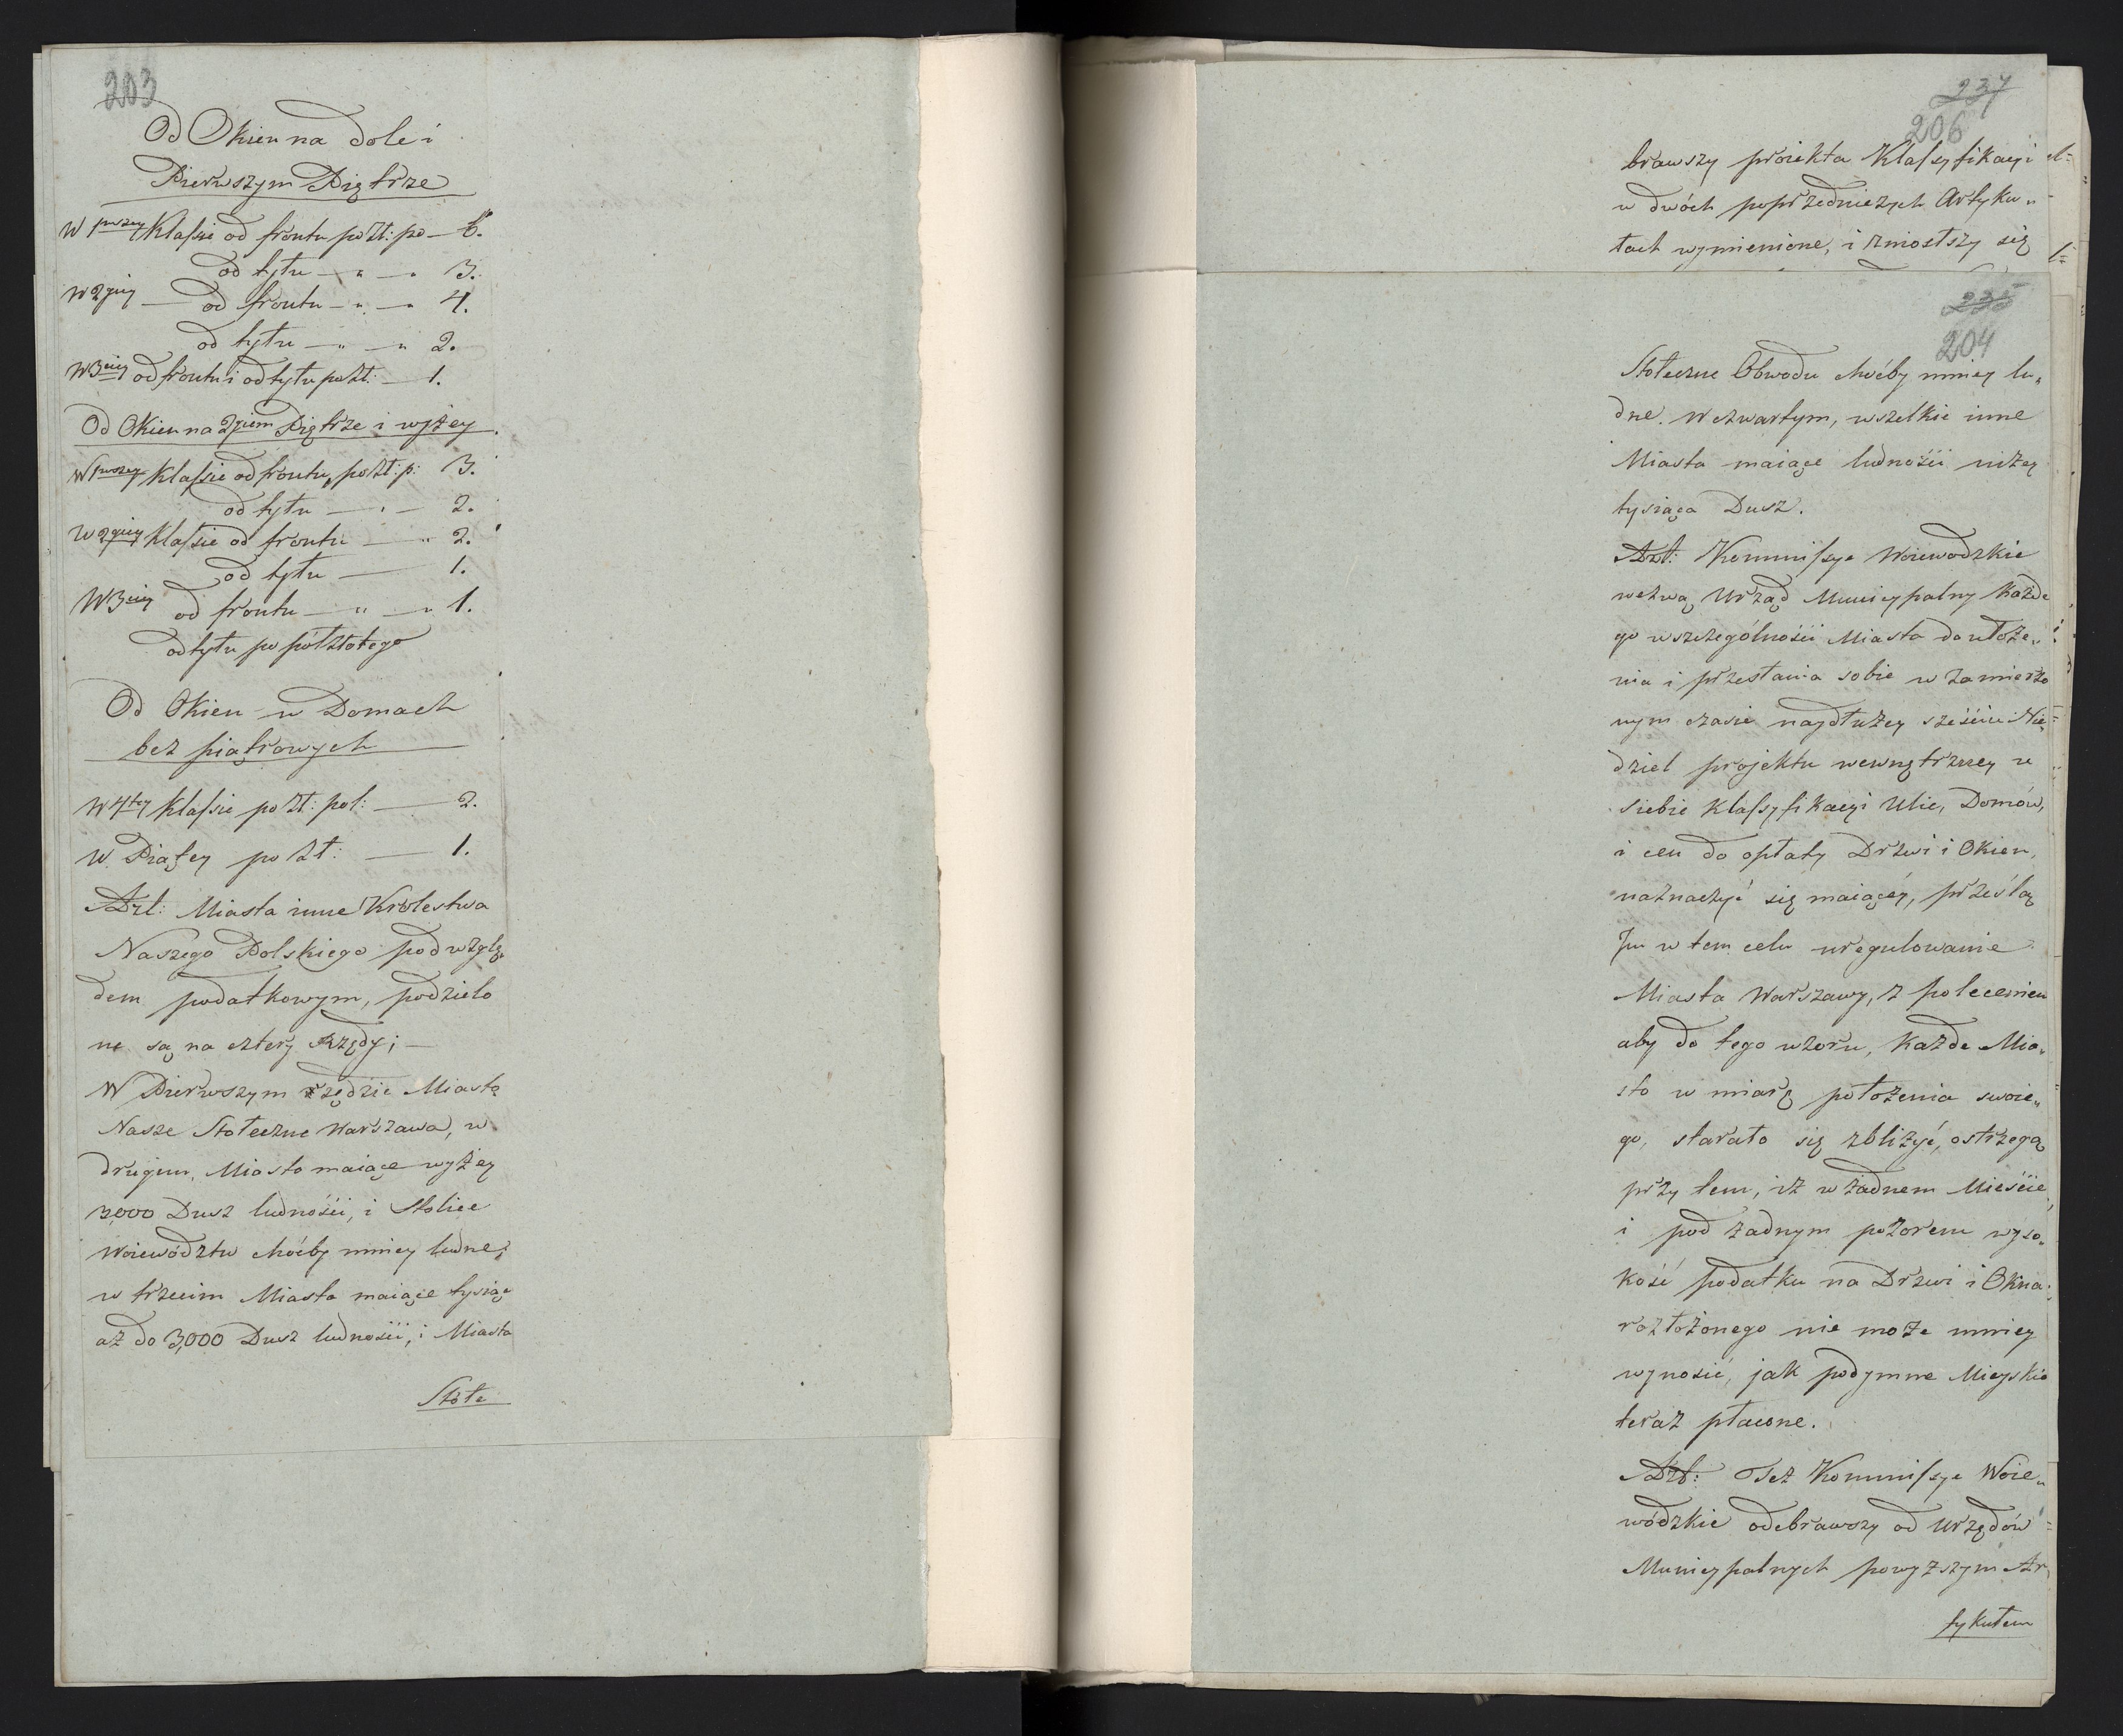 203
Od Okien na dole i
Pierwszym Piętrze
W 1wszey Klassie od frontu po zł: po — 6.
od tyłu — " — " 3.
W 2giey — od frontu — " — " 4.
od tyłu — " — " 2.
W 3ciey od frontu i od tyłu po zł: — 1.
Od Okien na 2giem Piętrze i wyżey.
W 1wszey Klassie od frontu, po zł: p: 3.
od tyłu — " — 2.
W 2giey Klassie od frontu — " 2.
od tyłu — 1.
W 3ciey od frontu — " — " 1.
od tyłu po pół złotego
Od Okien w Domach
bez piątrowych
W 4tey Klassie po zł: pol: — 2.
W Piątey po zł: — 1.
Art: Miasta inne Królestwa
Naszego Polskiego pod wzglę„
dem podatkowym, podzielo
ne są na cztery Rzędy; —
W Pierwszym rzędzie Miasto
Nasze Stołeczne Warszawa, w
drugiem, Miasta maiące wyżey
3,000 Dusz ludności, i Stolice
Województw choćby mniey ludne;
w trzecim Miasta maiące tysiąc
aż do 3,000 Dusz ludności, i Miasta
Stołe
237
206
brawszy proiekta Klassyfikacyi
w dwóch poprzedniczych Artyku„
łach wymienione, i zniosłszy się
235
204
Stołeczne Obwodu choćby mniey lu„
dne. W czwartym, wszelkie inne
Miasta maiące ludności niżey
tysiąca Dusz.
Art: Kommissye Woiewodzkie
wezwą Urząd Municypalny każde
go w szczególności Miasta do ułoże„
nia i przesłania sobie w zamierzo
nym czasie naydłużey sześciu Nie„
dziel projektu wewnętrzney u
siebie Klassyfikacyi Ulic, Domów,
i cen do opłaty Drzwi i Okien,
naznaczyć się maiącéy, prześlą
Im w tem celu uregulowanie
Miasta Warszawy, z poleceniem
aby do tego wzoru, każde Mia„
sto w miarę położenia swoie„
go, starało się zbliżyć, ostrzegą
przy tem, iż w żadnem Mieście,
i pod żadnym pozorem wyso„
kość podatku na Drzwi i Okna
rozłożonego nie może mniey
wynosić, jak podymne Mieyskie
teraz płacone.
Art: Też Kommissye Woie„
wódzkie odebrawszy od Urzędów
Municypalnych powyższym Ar
tykułem